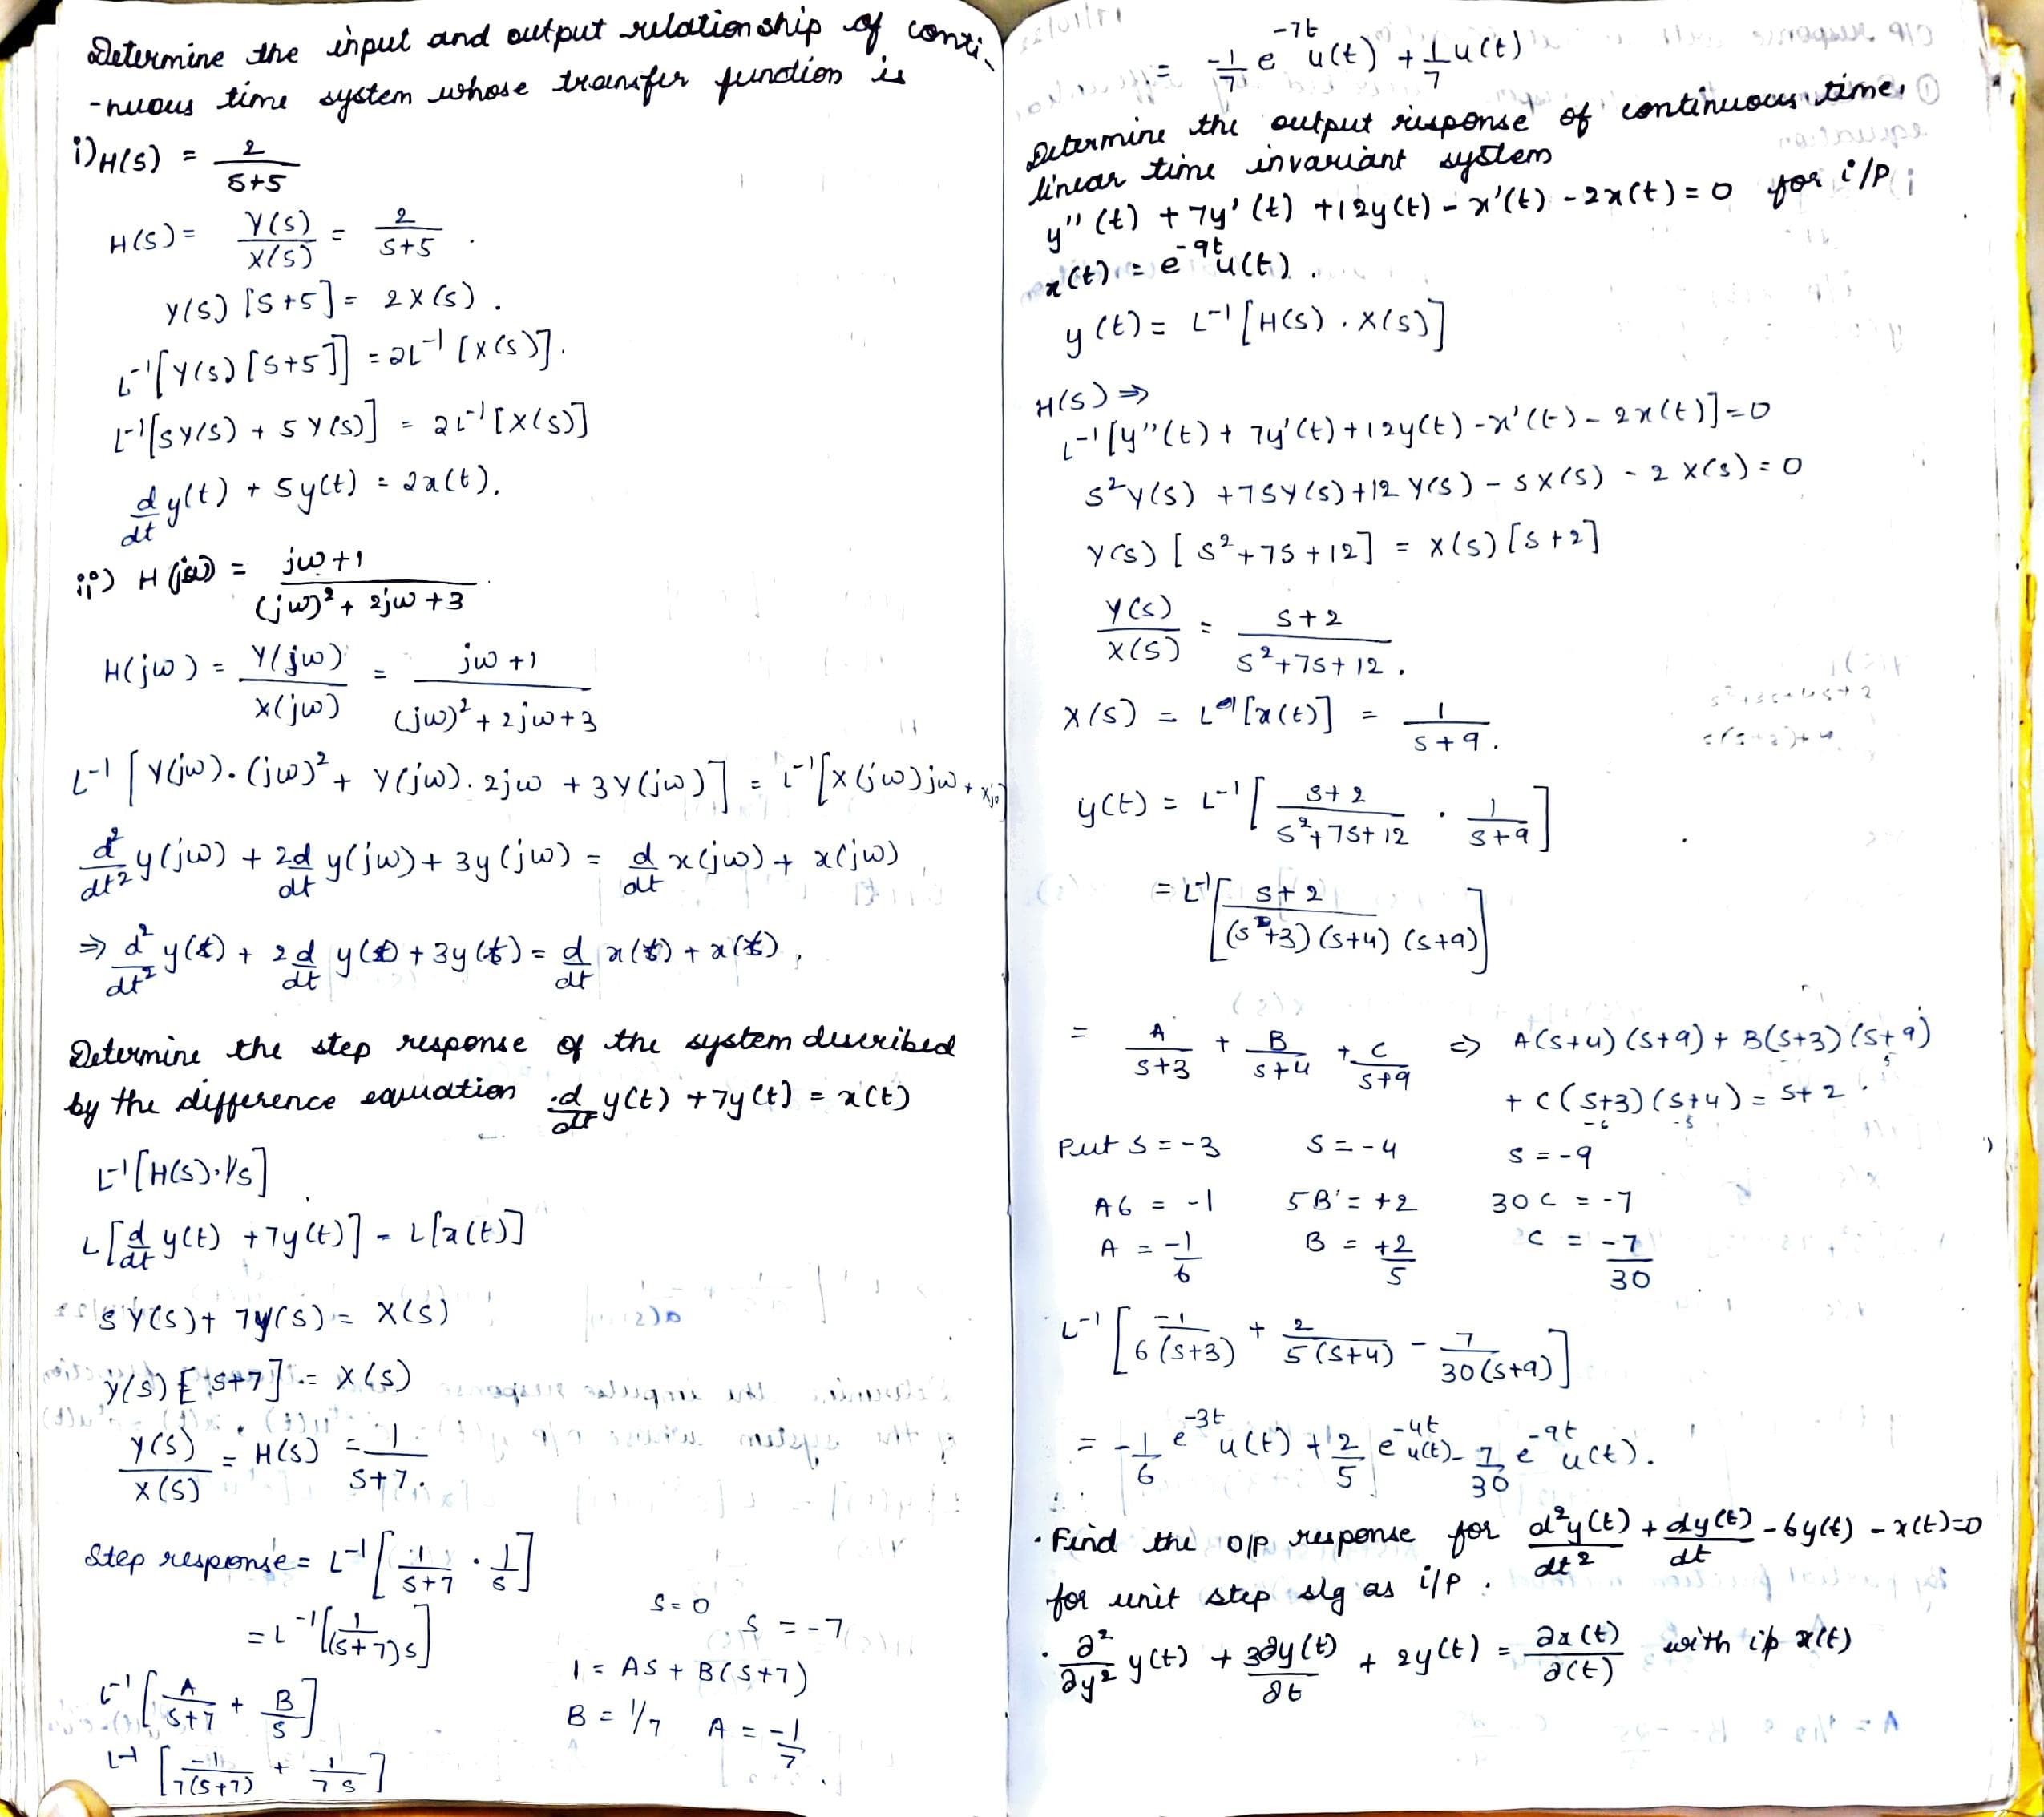 Determine the input and output relationship of conti-
-nuous time system whose transfer function is
i) H(s) = 2/(s+5)
H(s) = Y(s)/X(s) = 2/(s+5) .
Y(s) [s+5] = 2X(s) .
L⁻¹[Y(s) [s+5]] = 2L⁻¹ [X(s)].
L⁻¹[sY(s) + 5Y(s)] = 2L⁻¹[X(s)]
d/dt y(t) + 5y(t) = 2x(t).
ii) H(jω) = (jω+1)/((jω)² + 2jω + 3)
H(jω) = Y(jω)/X(jω) = (jω+1)/((jω)² + 2jω+3)
L⁻¹ [Y(jω).(jω)² + Y(jω).2jω + 3Y(jω)] = L⁻¹[X(jω)jω + Xjω]
d²/dt² y(jω) + 2d/dt y(jω) + 3y(jω) = d/dt x(jω) + x(jω)
⇒ d²/dt² y(t) + 2d/dt y(t) + 3y(t) = d/dt x(t) + x(t),
Determine the step response of the system described
by the difference equation d/dt y(t) + 7y(t) = x(t)
L⁻¹[H(s).1/s]
L[d/dt y(t) + 7y(t)] = L[x(t)]
sY(s) + 7Y(s) = X(s)
Y(s) [s+7] = X(s)
Y(s)/X(s) = H(s) = 1/(s+7).
Step response = L⁻¹[1/(s+7) . 1/s]
= L⁻¹[1/((s+7)s)]
s=0 s=-7
L⁻¹[A/(s+7) + B/s]
1 = AS + B(s+7)
B = 1/7 A = -1/7
L⁻¹[-1/(7(s+7)) + 1/(7s)]
= -1/7 e^(-7t) u(t) + 1/7 u(t)
Determine the output response of continuous time,
linear time invariant system
y''(t) + 7y'(t) + 12y(t) - x'(t) - 2x(t) = 0 for i/p
x(t) = e^(-9t) u(t).
y(t) = L⁻¹[H(s) . X(s)]
H(s) ⇒
L⁻¹[y''(t) + 7y'(t) + 12y(t) - x'(t) - 2x(t)] = 0
s²Y(s) + 7sY(s) + 12Y(s) - sX(s) - 2X(s) = 0
Y(s) [s² + 7s + 12] = X(s) [s+2]
Y(s)/X(s) = (s+2)/(s²+7s+12).
X(s) = L[x(t)] = 1/(s+9).
y(t) = L⁻¹[(s+2)/(s²+7s+12) . 1/(s+9)]
= L⁻¹[(s+2)/((s+3)(s+4)(s+9))]
= A/(s+3) + B/(s+4) + C/(s+9) ⇒ A(s+4)(s+9) + B(s+3)(s+9)
+ C(s+3)(s+4) = s+2 .
-6 -5
Put s=-3 s=-4 s=-9
A6 = -1 5B = +2 30C = -7
A = -1/6 B = +2/5 C = -7/30
L⁻¹[-1/(6(s+3)) + 2/(5(s+4)) - 7/(30(s+9))]
= -1/6 e^(-3t) u(t) + 2/5 e^(-4t) u(t) - 7/30 e^(-9t) u(t).
• Find the o/p response for d²y(t)/dt² + dy(t)/dt - 6y(t) - x(t)=0
for unit step slg as i/p .
• ∂²/∂y² y(t) + 3∂y(t)/∂t + 2y(t) = ∂x(t)/∂(t) with i/p x(t)